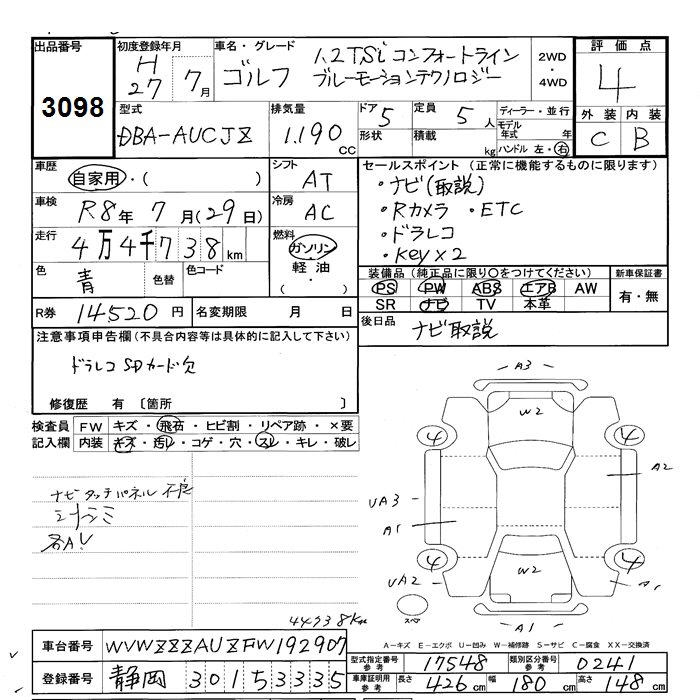 出品番号 3098
初度登録年月 H27 7月
車名・グレード ゴルフ 1.2TSi コンフォートライン ブルーモーションテクノロジー
2WD・4WD
評価点 4
外装 C 内装 B
型式 DBA-AUCJZ
排気量 1.190 CC
ドア 5 形状
定員 5人 積載 kg
ディーラー・並行
モデル年式 年
ハンドル 左・右
車歴 自家用・( )
シフト AT
車検 R8年 7月(29日)
冷房 AC
走行 4万4千738km
燃料 ガソリン・軽油・( )
色 青 色替 色コード
R券 14520円 名変期限 月 日
セールスポイント(正常に機能するものに限ります)
・ナビ(取説)
・Rカメラ ・ETC
・ドラレコ
・Key×2
装備品(純正品に限り○をつけてください) 新車保証書
PS PW ABS エアB AW 有・無
SR ナビ TV 本革
後日品 ナビ取説
注意事項申告欄(不具合内容等は具体的に記入して下さい)
ドラレコ SDカード欠
修復歴 有 〔箇所 〕
検査員記入欄
FW キズ・飛石・ヒビ割・リペア跡・×要
内装 キズ・汚レ・コゲ・穴・スレ・キレ・破レ
ナビタッチパネル不良
A3
W2
4 4
A2
UA3
A1
4 4
W2
UA2
A1
スペア
A1
44738km
A-キズ E-エクボ U-凹み W-補修跡 S-サビ C-腐食 XX-交換済
車台番号 WVWZZZAUZFW192907
登録番号 静岡 301 5 3335
型式指定番号 参考 17548 類別区分番号 参考 0241
車庫証明用 参考 長さ 426cm 幅 180cm 高さ 148cm